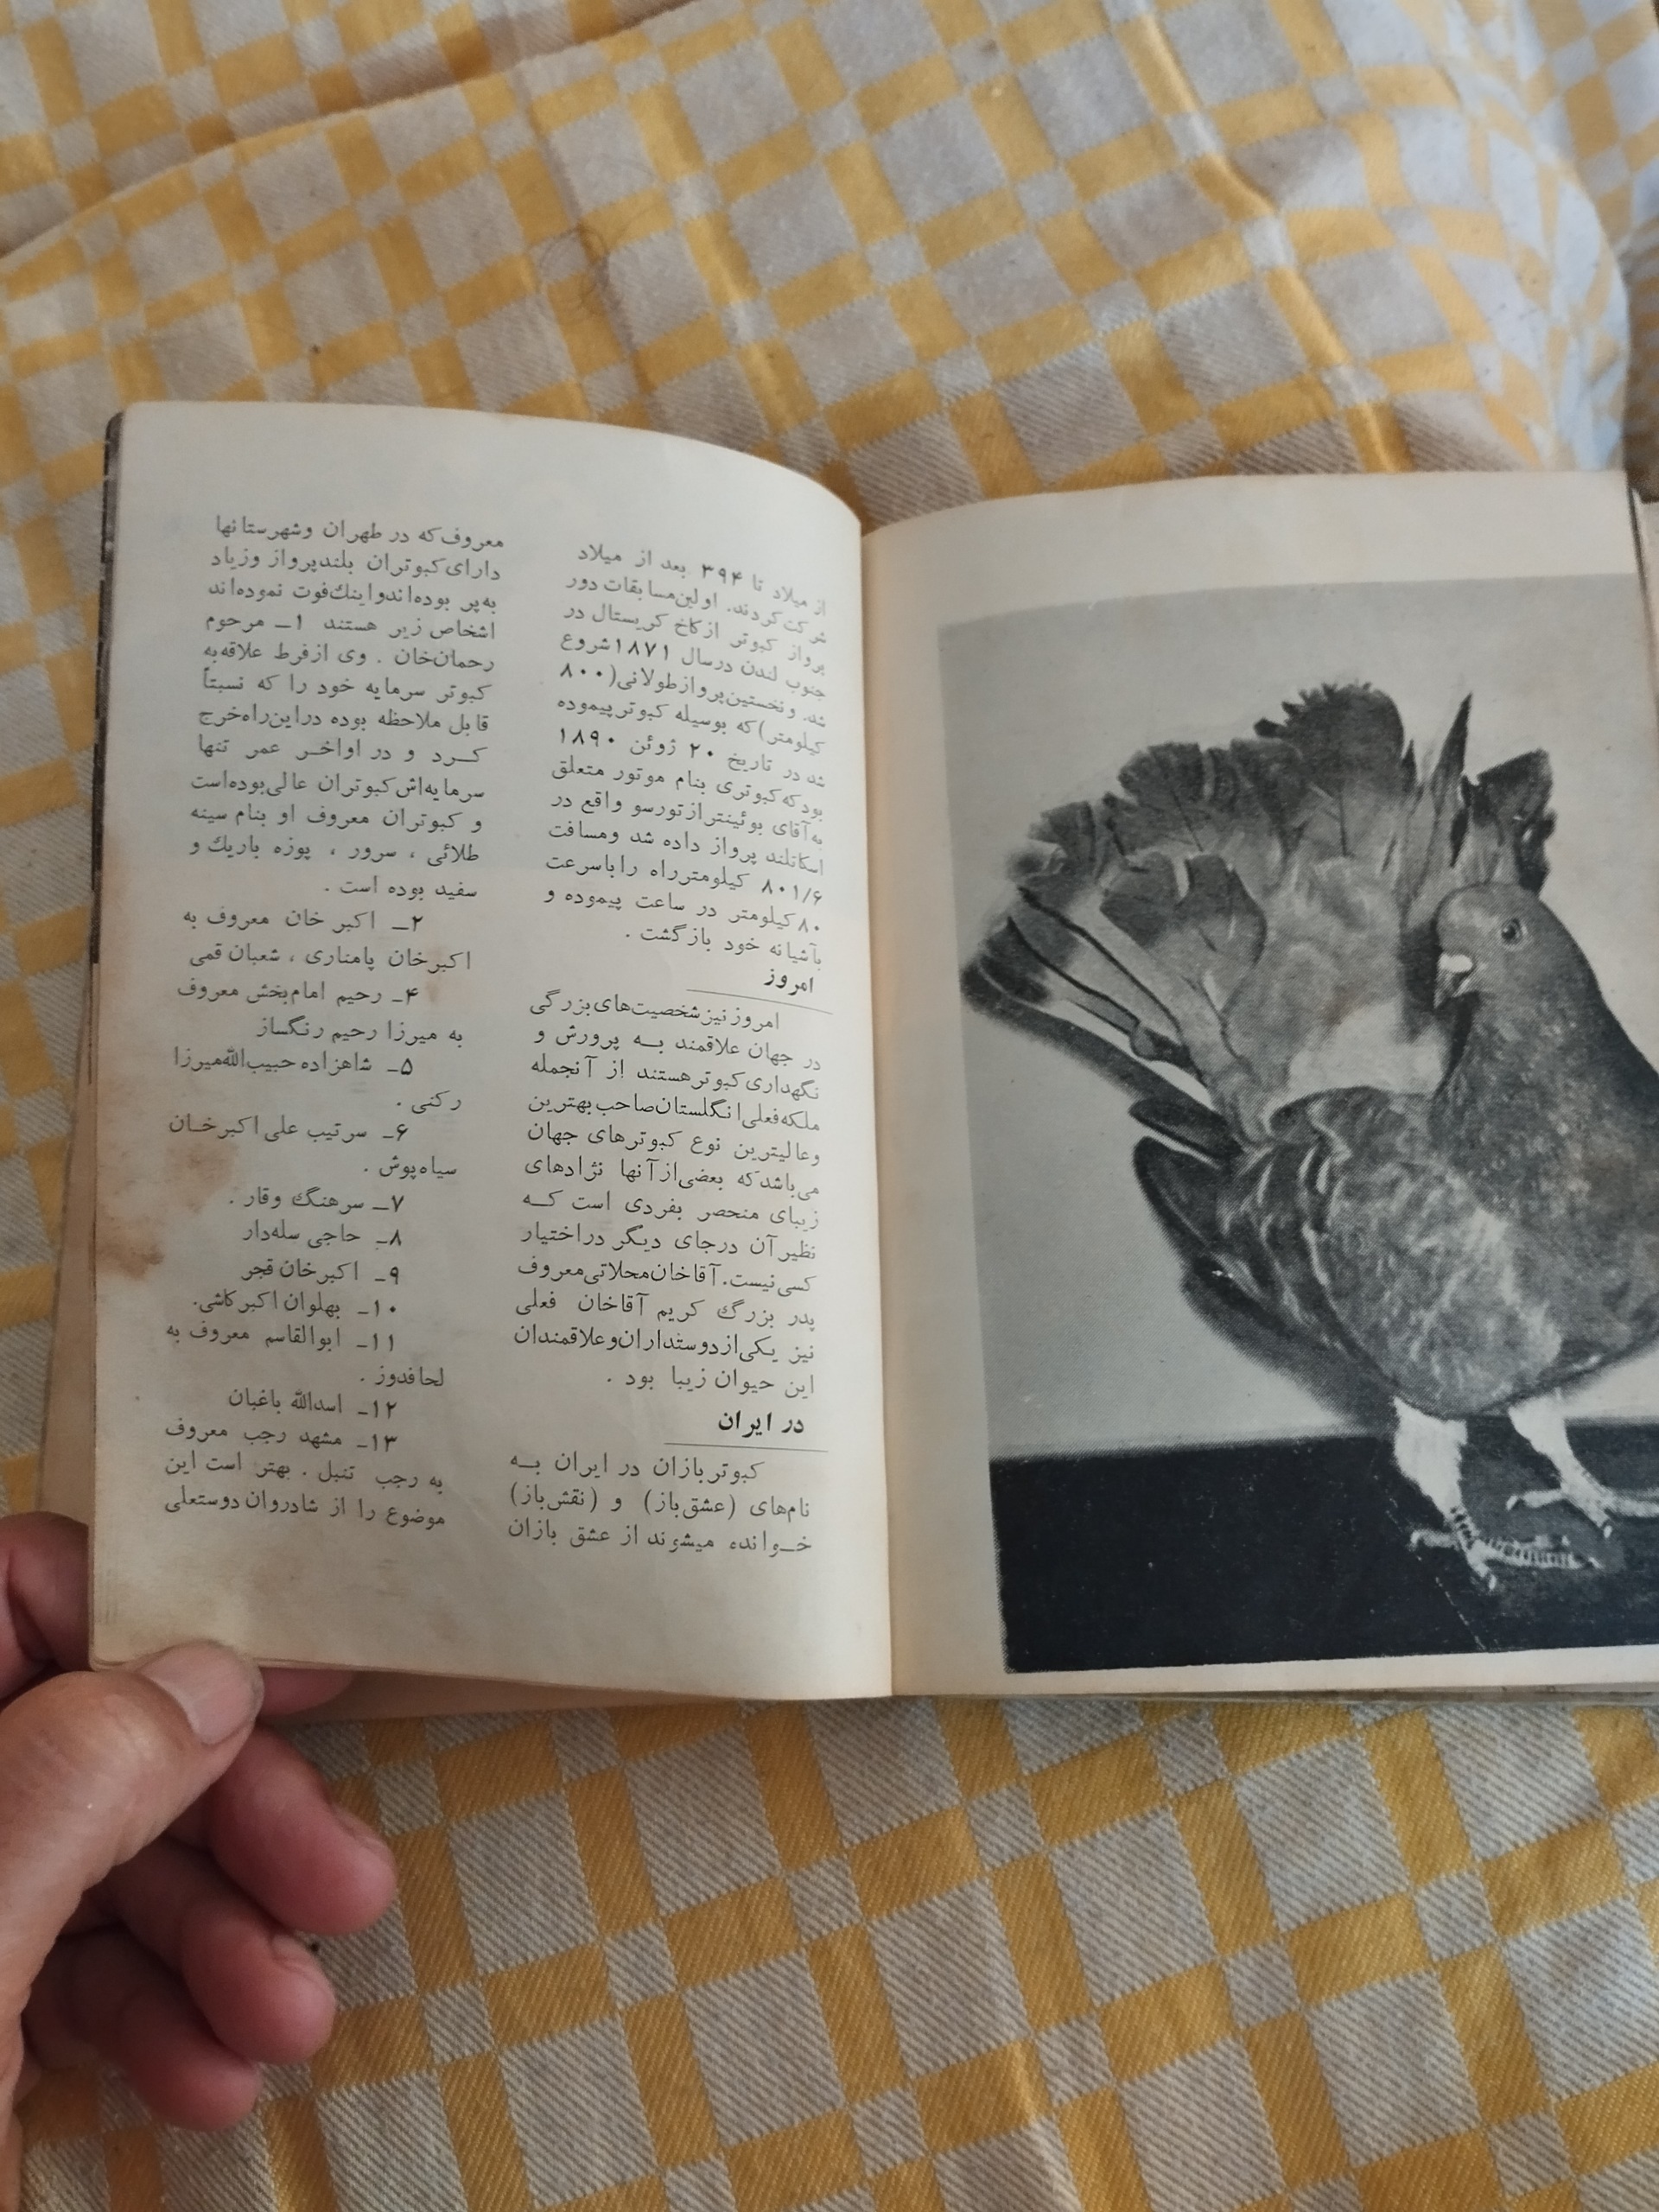 از میلاد تا ۳۹۴ بعد از میلاد
شرکت کردند. اولین مسابقات دور
پرواز کبوتر از کاخ کریستال در
جنوب لندن در سال ۱۸۷۱ شروع
شد. و نخستین پرواز طولانی (۸۰۰
کیلومتر) که بوسیله کبوتر پیموده
شد در تاریخ ۲۰ ژوئن ۱۸۹۰
بود که کبوتری بنام موتور متعلق
به آقای بوئینتر از تورسو واقع در
اسکاتلند پرواز داده شد و مسافت
۸۰۱/۶ کیلومتر راه را با سرعت
۸۰ کیلومتر در ساعت پیموده و
بآشیانه خود بازگشت .
امروز
امروز نیز شخصیت‌های بزرگی
در جهان علاقمند بـه پرورش و
نگهداری کبوتر هستند از آنجمله
ملکه فعلی انگلستان صاحب بهترین
و عالیترین نوع کبوترهای جهان
می‌باشد که بعضی از آنها نژادهای
زیبای منحصر بفردی است کـه
نظیر آن درجای دیگر در اختیار
کسی نیست. آقاخان محلاتی معروف
پدر بزرگ کریم آقاخان فعلی
نیز یکی از دوستداران و علاقمندان
این حیوان زیبا بود .
در ایران
کبوتر بازان در ایران بـه
نام‌های (عشق‌باز) و (نقش‌باز)
خـوانده میشوند از عشق بازان
معروف که در طهران و شهرستانها
دارای کبوتران بلند پرواز و زیاد
به‌پر بوده‌اند و اینك فوت نموده‌اند
اشخاص زیر هستند ۱ــ مرحوم
رحمان‌خان . وی از فرط علاقه به
کبوتر سرمایه خود را که نسبتاً
قابل ملاحظه بوده در این راه خرج
کــرد و در اواخــر عمر تنها
سرمایه‌اش کبوتران عالی بوده است
و کبوتران معروف او بنام سینه
طلائی ، سرور ، پوزه باریك و
سفید بوده است .
۲ــ اکبر خان معروف به
اکبرخان پامناری ، شعبان قمی
۴ــ رحیم امام‌بخش معروف
به میرزا رحیم رنگساز
۵ــ شاهزاده حبیب‌الله میرزا
رکنی .
۶ــ سرتیپ علی اکبر خـان
سیاه‌پوش .
۷ــ سرهنگ وقار .
۸ــ حاجی سله‌دار
۹ــ اکبرخان قجر
۱۰ــ بهلوان اکبر کاشی.
۱۱ــ ابوالقاسم معروف به
لحافدوز .
۱۲ــ اسدالله باغبان
۱۳ــ مشهد رجب معروف
به رجب تنبل . بهتر است این
موضوع را از شادروان دوستعلی